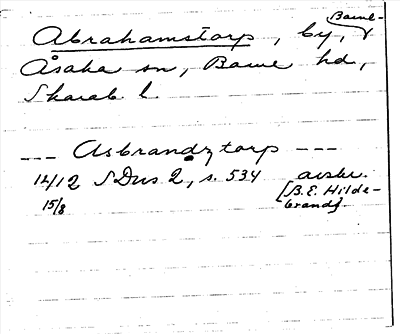 Abrahamstorp, by,
Åsaka sn, Barne hd,
Skarab. l.
--- Asbrandz torp ---
14/12 SDns 2, s. 534 avskr.
15/8 [B.E. Hilde-
brand].